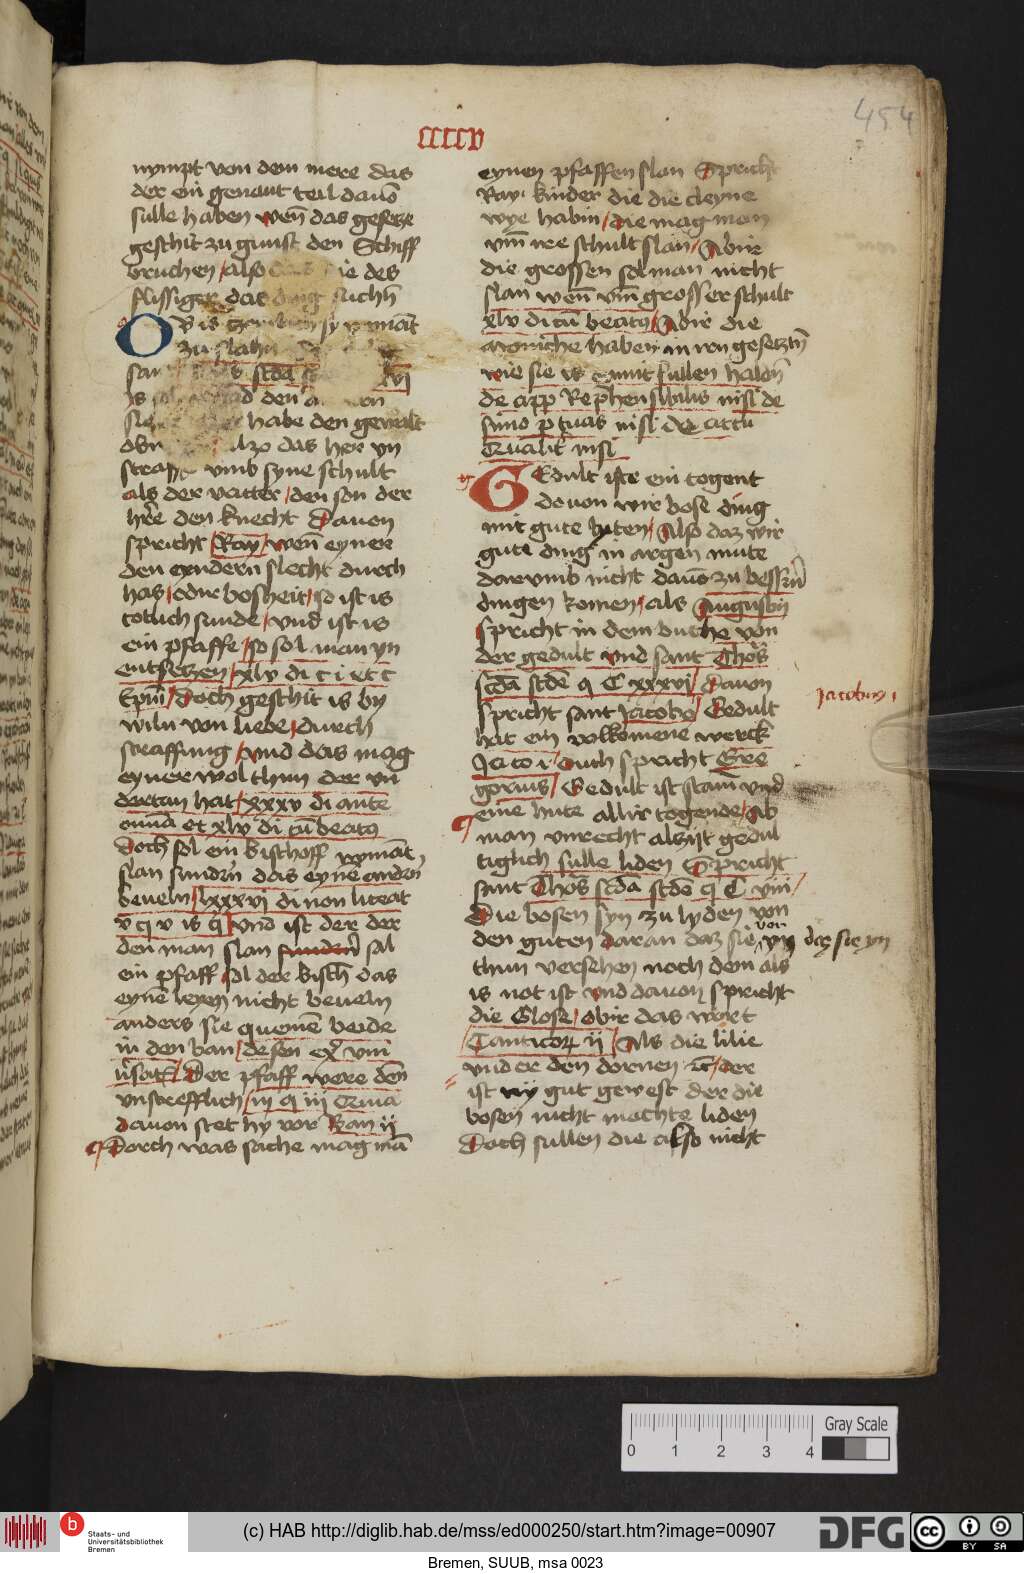 454
ccccv
nympt von dem mere das
der ein genant teil dauō
sulle haben wen̄ das gesetze
geschit zu gunst den Schiff
bruchen also die des
flissiger das ding suchn̄
OB is sy ymāt
zu slahn
is den
habe den gewalt
obir alzo das her yn
straffe vmb syne schult
als der vatter den son der
hr̄e den knecht Dauon
spricht Ray wen̄ eyner
den eyndern slecht durch
has odir bosheit so ist is
totlich sunde vnd ist is
ein pfaffe so sol man yn
entsetzen xlv di c i et c
Epm̄ Doch geschit is by
wiln von liebe durch
straffung vnd das mag
eyner wol thun der vn̄
dertan hat xxxv di ante
omnia et xlv di cū beatꝯ
Doch sol ein bischoff nymāt
slan sundir̄ das eynē andern
beueln lxxxvi di non liceat
v q v is q vnd ist der der
den man slan sundirn̄ sal
ein pfaff sol der bisch̄ das
eynē leyen nicht beueln
anders sie quemē beide
in den ban de sen ex̄ vni
ūsit Der pfaff were den̄
vnstrefflich iij q iij
dauon stet hy vor Ban ij
Dorch was sache mag mā
eynen pfaffen slan Spricht
Ray kinder die die cleyne
wye habin die mag man
vm̄ ire schult slan Abir
die grossen sol man nicht
slan wen̄ vm̄ grosser schult
xlv di cū beatꝯ Abir die
moniche haben in irn gesetzn̄
wie sie is vmmit sullen haldn̄
de app Rephensibilis nisi de
simo p tuas nisi de accu
Qualit̄ nisi
GEdult istc ein togent
dauon wir bose ding
mit gute liten Also daz wir
gute ding in argen mute
darvmb nicht dauō zu bessrn̄
dingen komen als Augustin
spricht in dem buche von
der gedult vnd sant Thōs
scd̄a scd̄e q C xxxvj Dauon
spricht sant Jacobꝯ Gedult
hat ein volkomene werck
Jaco i Ouch spricht Gre
gorius Gedult ist stam̄ vnd
eine hute allir togende Ab
man vnrecht alzijt gedul
tiglich sulle liden Spricht
sant Thōs scd̄a scd̄e q C viii
Die bosen syn zu lyden von
den guten daran daz sie von yn daz sie yn
thun versehen noch dem als
is not ist vnd dauon spricht
die Glose obir das wort
Canticoꝝ ij Als die lilie
vnder den dornen ꝛc̄ der
ist ny gut gewest der die
bosen nicht mochte liden
Doch sullen die also nicht
Jacobus i
0 1 2 3 4
Gray Scale
b
Staats- und
Universitätsbibliothek
Bremen
(c) HAB http://diglib.hab.de/mss/ed000250/start.htm?image=00907
DFG
cc BY SA
Bremen, SUUB, msa 0023